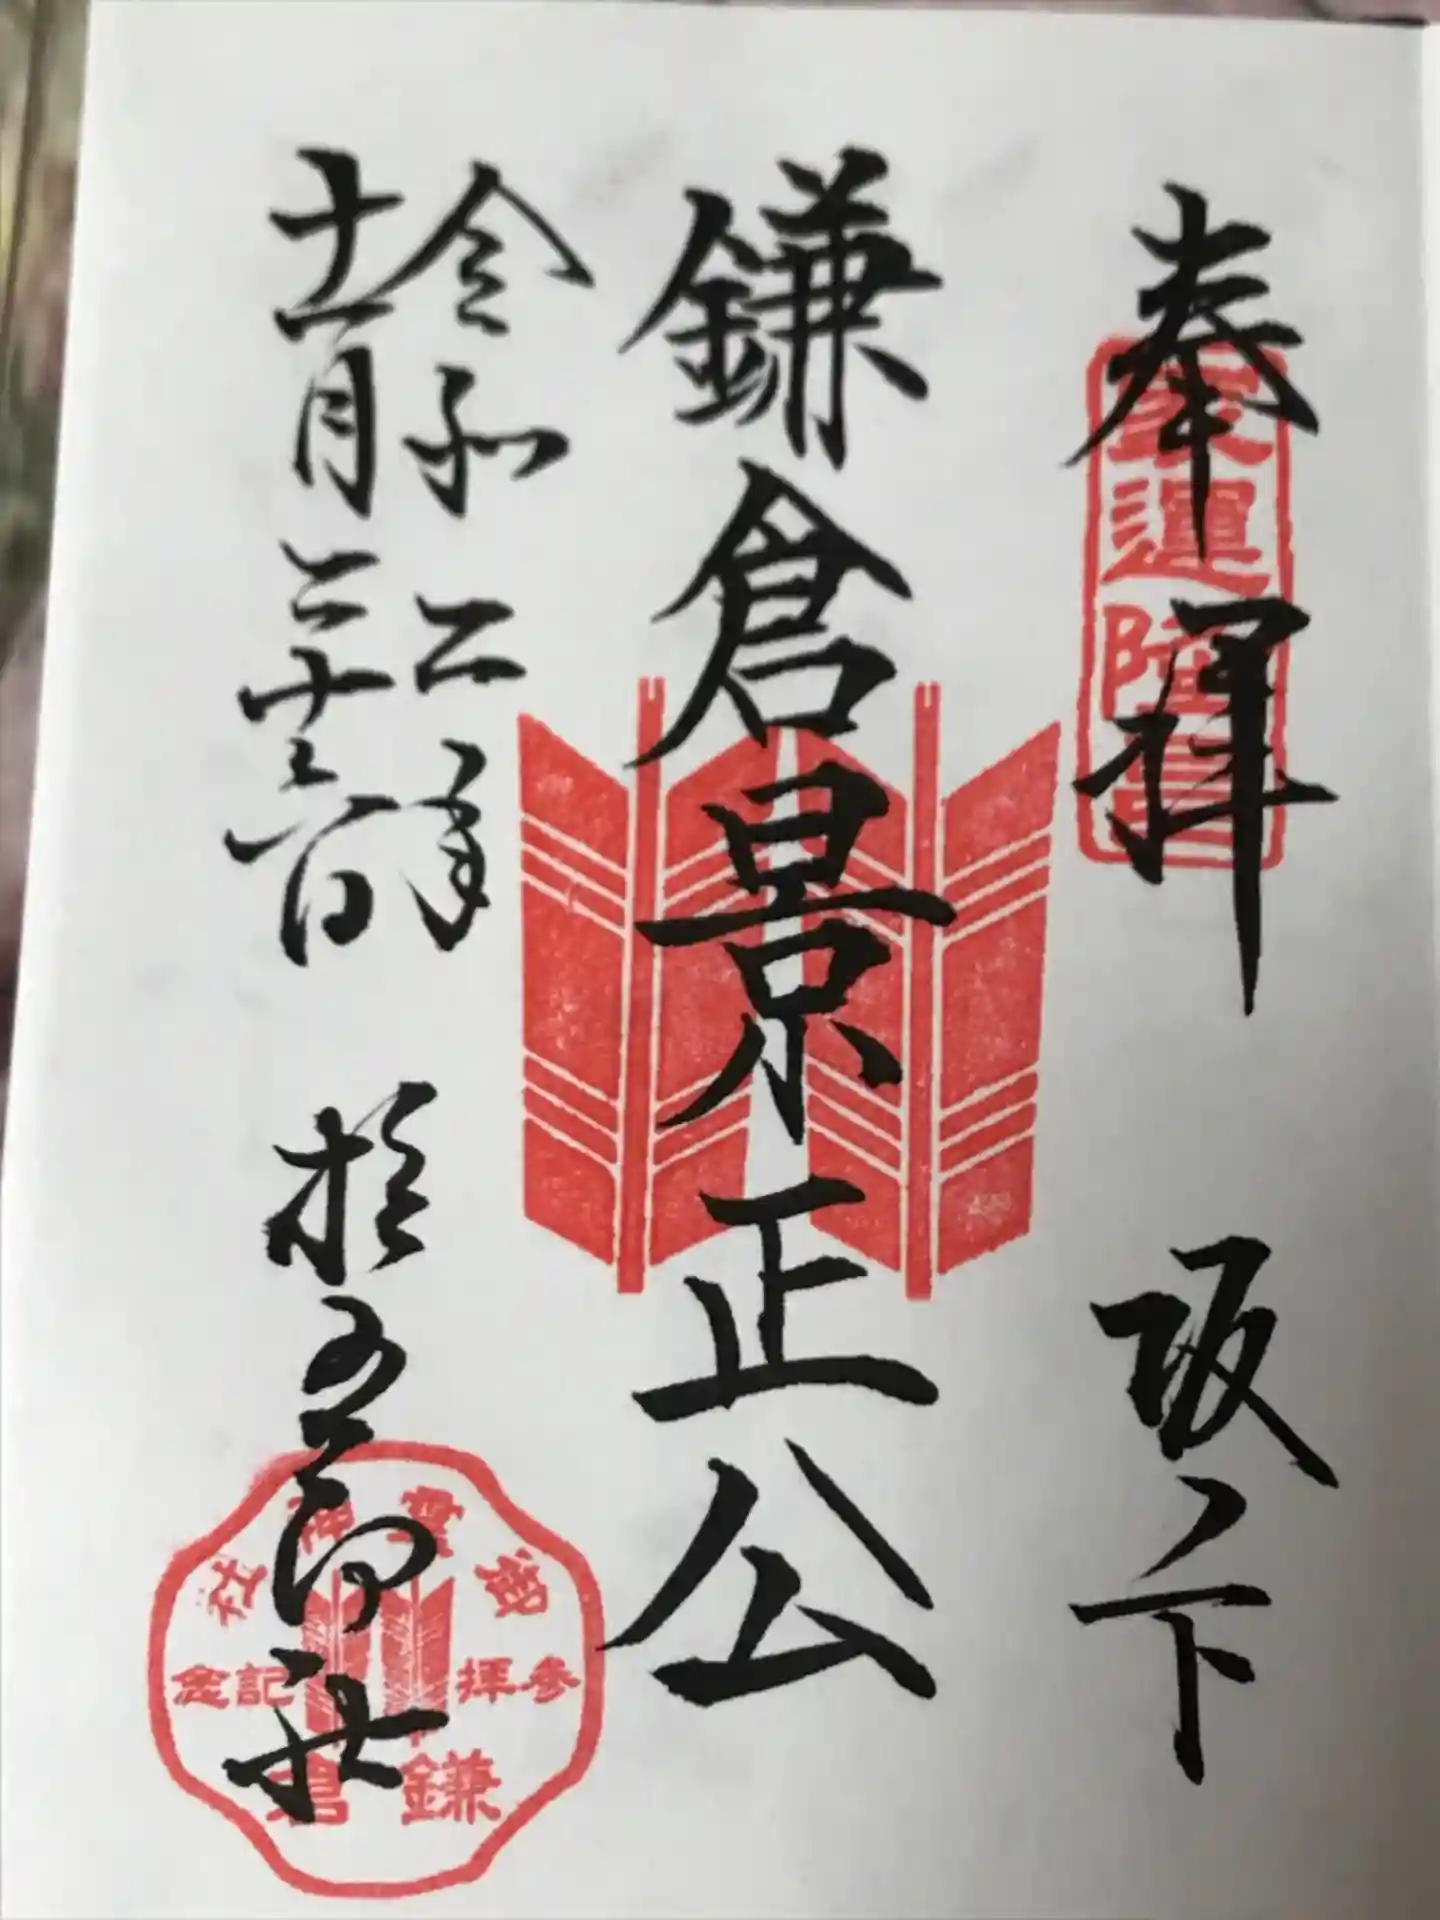 奉拝 坂ノ下
家運隆昌
鎌倉景正公
令和二年
十一月二十三日
社
御霊神社
参拝記念
鎌倉